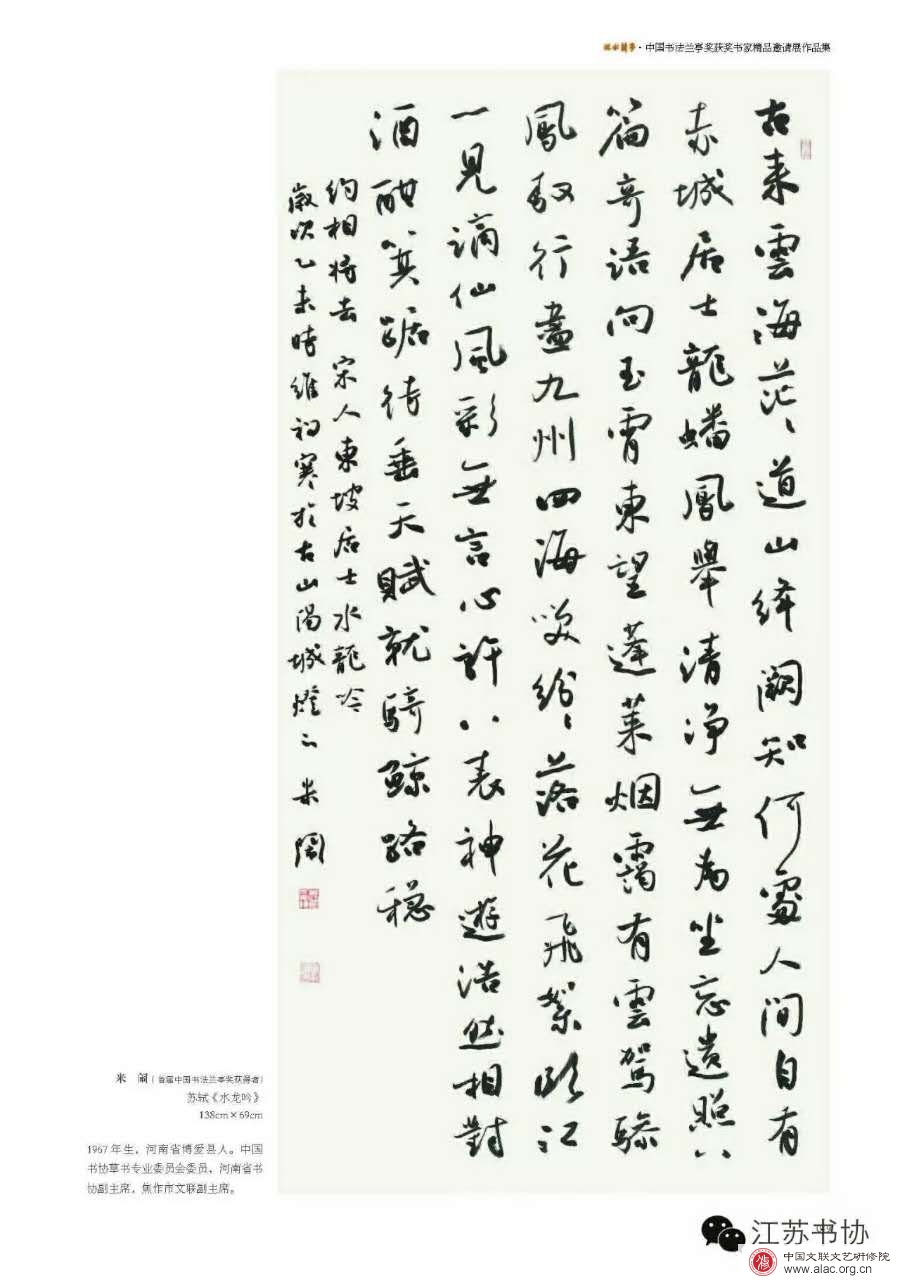 ·中国书法兰亭奖获奖书家精品邀请展作品集
古来雲海茫〻道山绛阙知何處人间自有
赤城居士龍蟠鳳舉清净無为坐忘遗照八
篇奇语向玉霄東望蓬莱烟靄有雲駕驂
鳳馭行盡九州四海笑纷〻落花飛絮临江
一見谪仙風彩無言心許八表神遊浩然相對
酒酣箕踞待垂天賦就骑鲸路穏
约相将去 宋人東坡居士水龍吟
歳次乙未時维初寒於古山阳城燈下米闹
米 闹（首届中国书法兰亭奖获得者）
苏轼《水龙吟》
138cm×69cm
1967年生，河南省博爱县人。中国
书协草书专业委员会委员，河南省书
协副主席，焦作市文联副主席。
江苏书协
中国文联文艺研修院
www.alac.org.cn